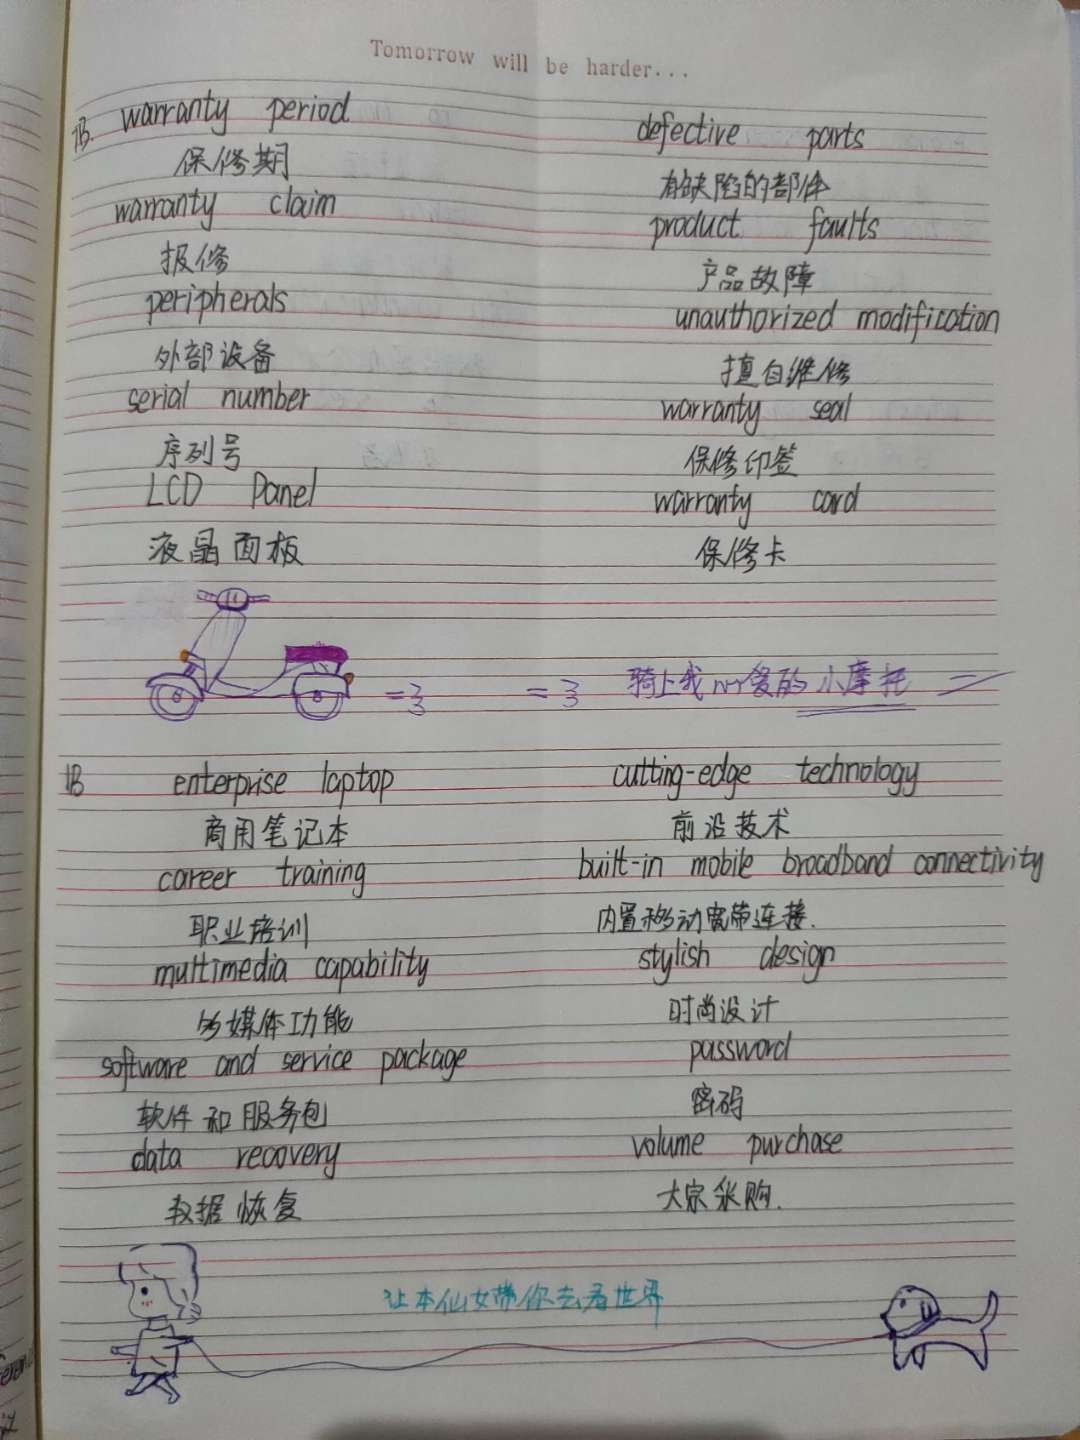 Tomorrow will be harder...
1B. warranty period
defective parts
保修期
有缺陷的部件
warranty claim
product faults
报修
产品故障
peripherals
unauthorized modification
外部设备
擅自维修
serial number
warranty seal
序列号
保修印签
LCD Panel
warranty card
液晶面板
保修卡
=3 =3 骑上我心爱的小摩托
1B enterprise laptop
cutting-edge technology
商用笔记本
前沿技术
career training
built-in mobile broadband connectivity
职业培训
内置移动宽带连接.
multimedia capability
stylish design
多媒体功能
时尚设计
software and service package
password
软件和服务包
密码
data recovery
volume purchase
数据恢复
大宗采购.
让本仙女带你去看世界